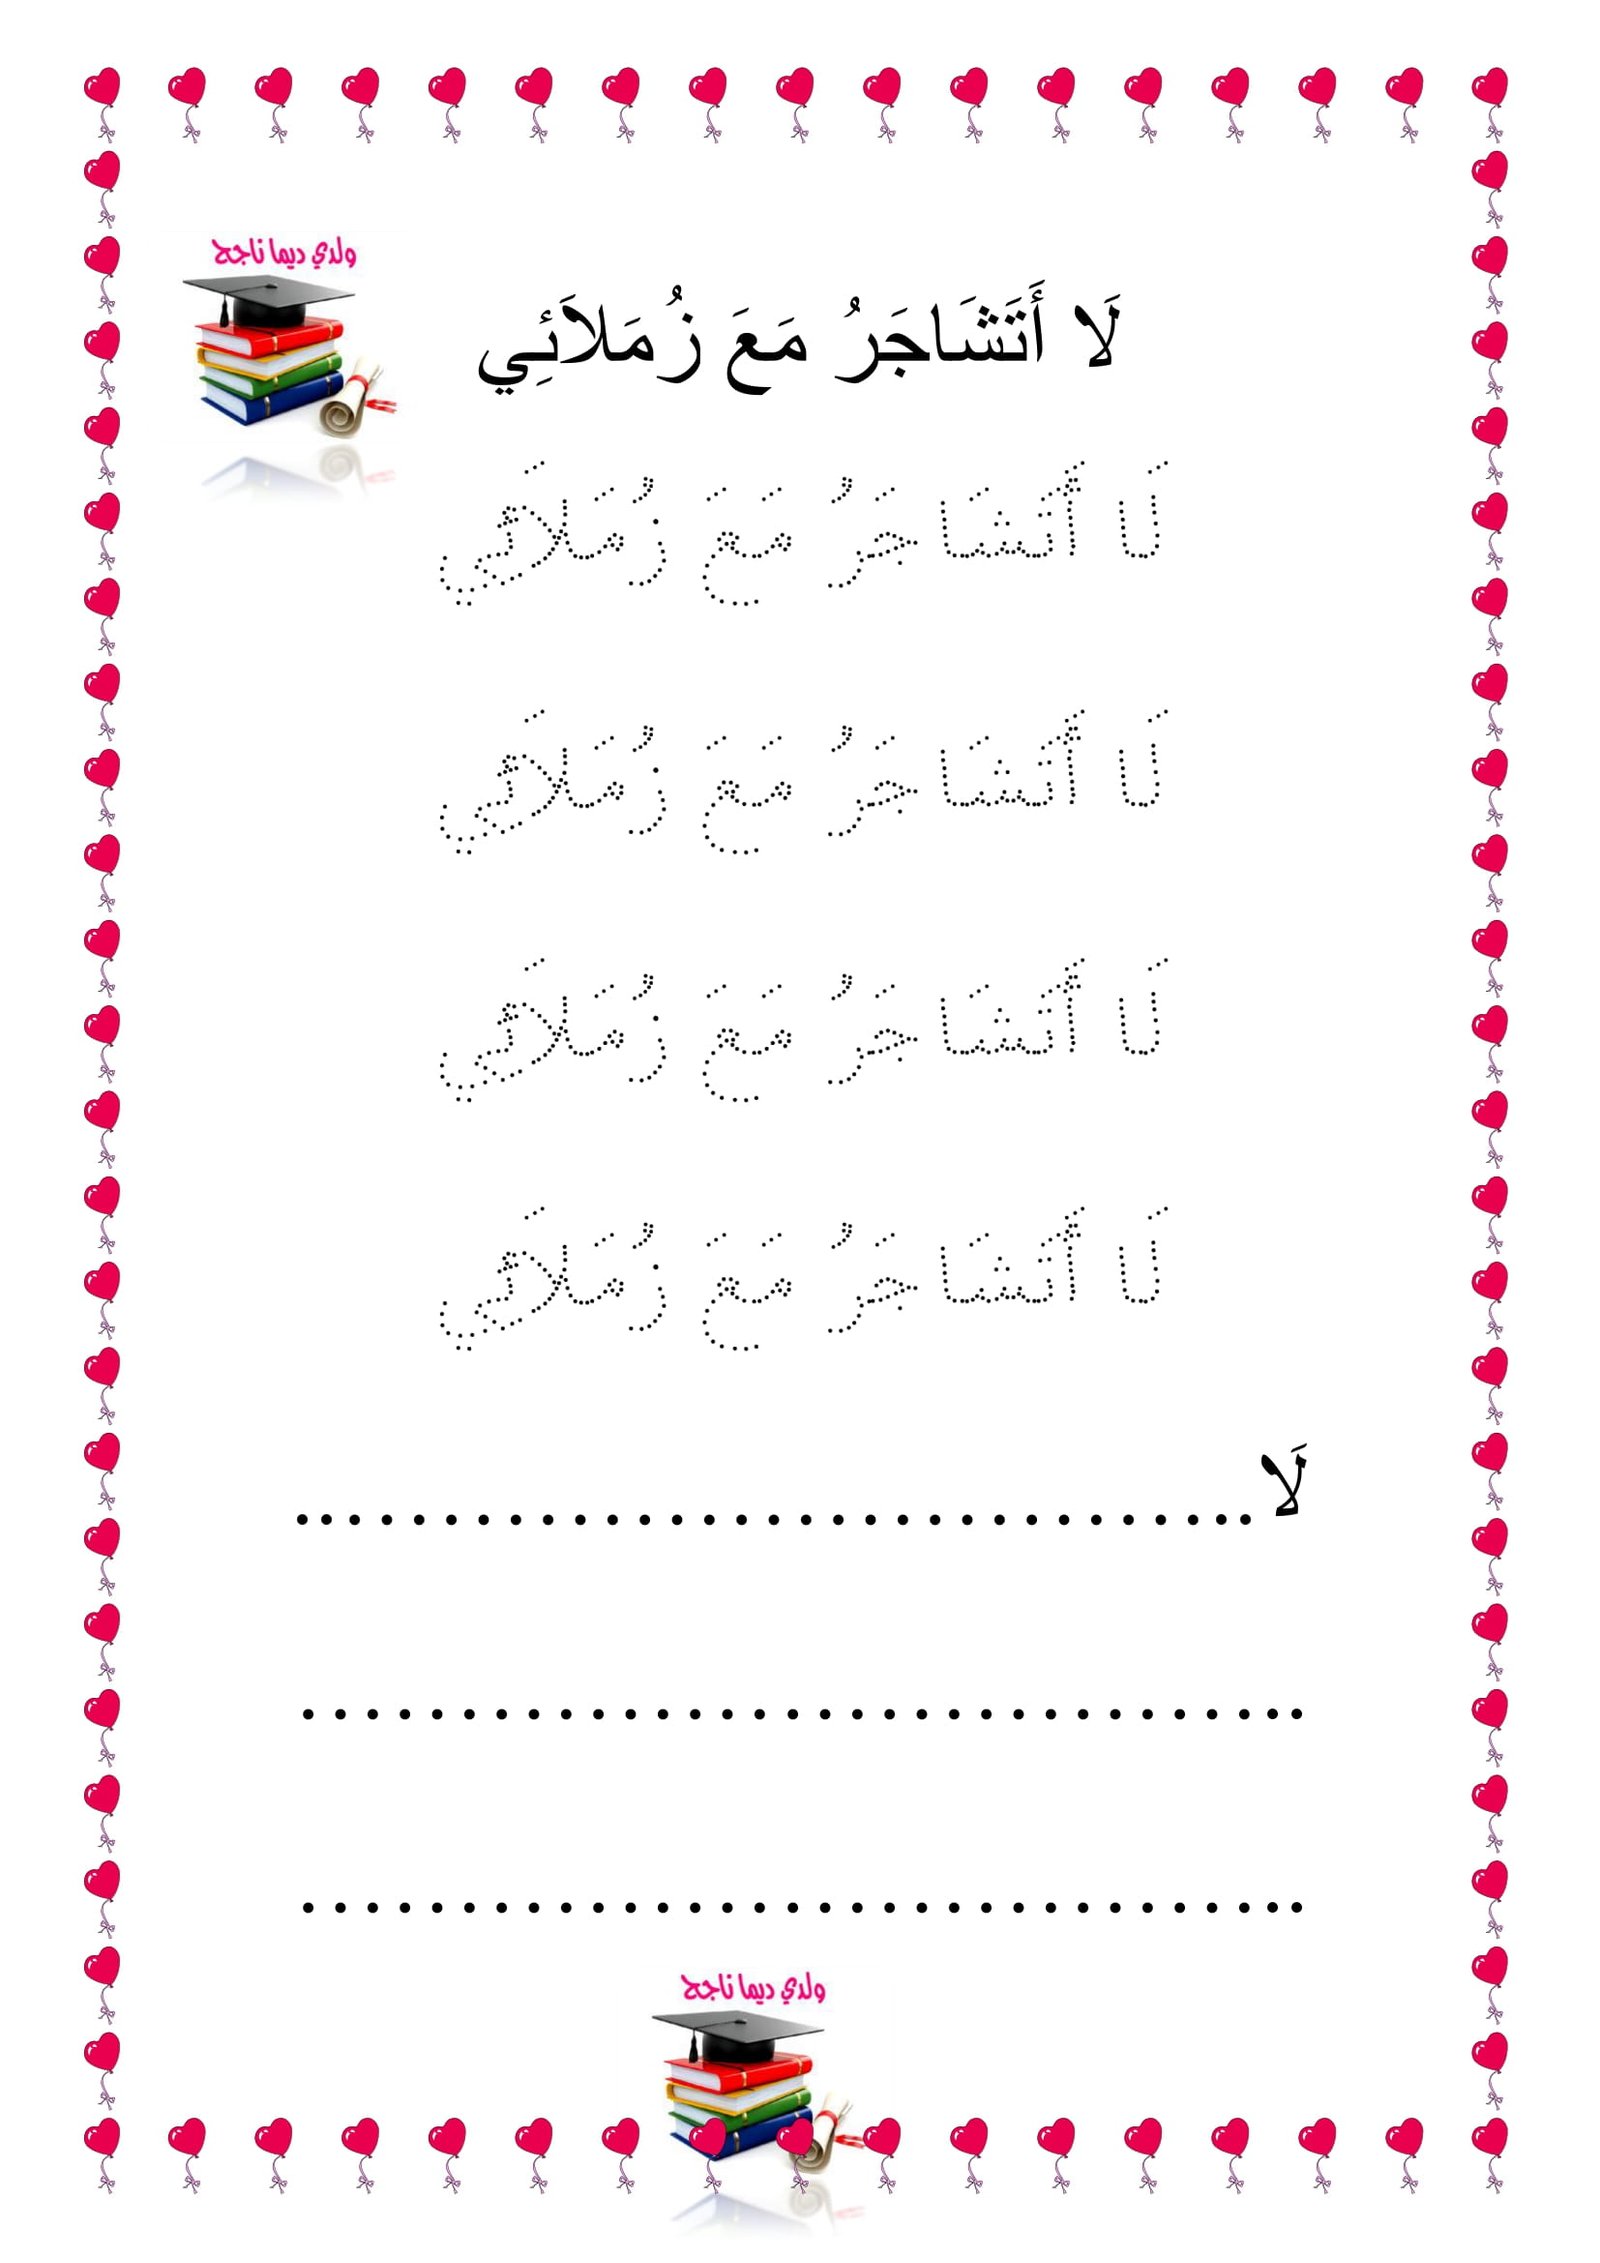 ولدي ديما ناجح
لَا أَتَشَاجَرُ مَعَ زُمَلاَئِي
لَا أَتَشَاجَرُ مَعَ زُمَلَائَي
لَا أَتَشَاجَرُ مَعَ زُمَلَائَي
لَا أَتَشَاجَرُ مَعَ زُمَلَائَي
لَا أَتَشَاجَرُ مَعَ زُمَلَائَي
لَا................................
................................
................................
ولدي ديما ناجح